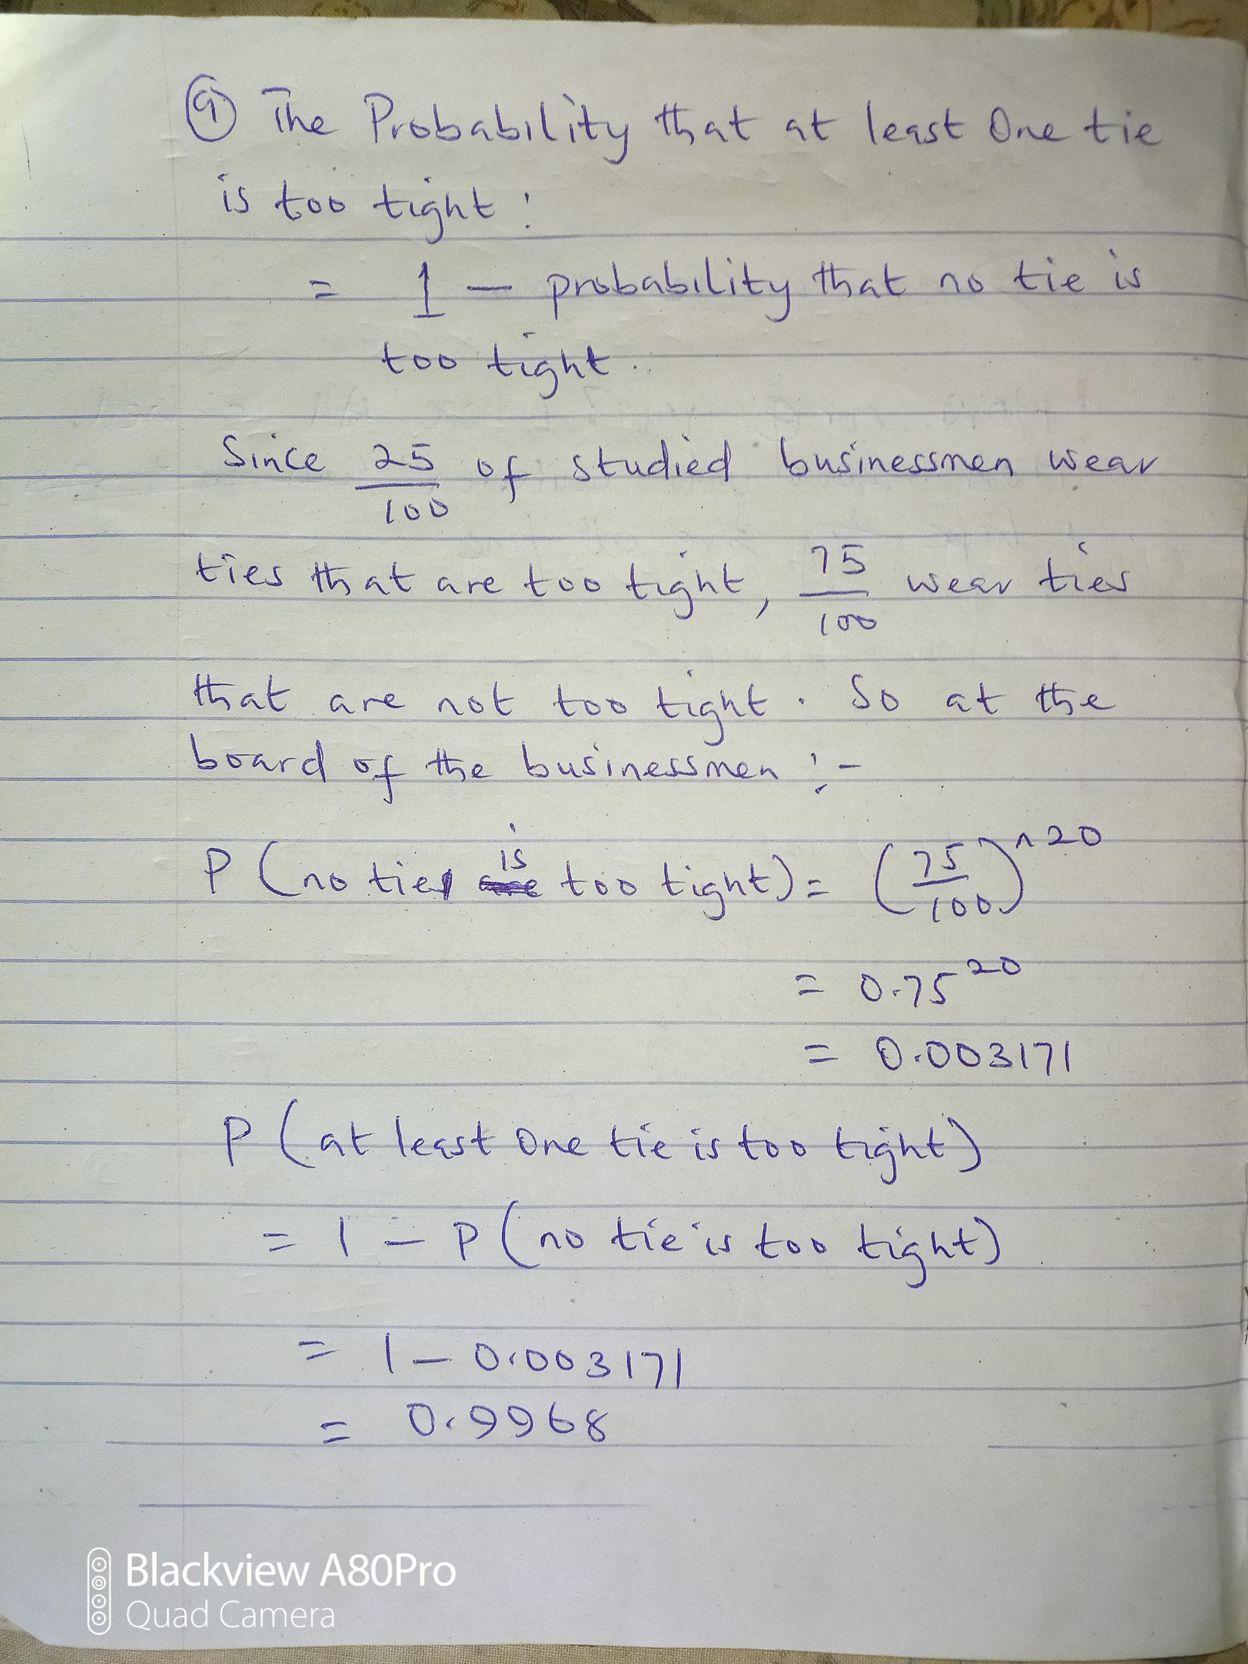 9 The Probability that at least One tie
is too tight :
= 1 - probability that no tie is
too tight.
Since 25/100 of studied businessmen wear
ties that are too tight, 75/100 wear ties
that are not too tight. So at the
board of the businessmen :-
P (no tie is too tight) = (75/100)^20
= 0.75^20
= 0.003171
P (at least One tie is too tight)
= 1 - P (no tie is too tight)
= 1 - 0.003171
= 0.9968
Blackview A80Pro
Quad Camera